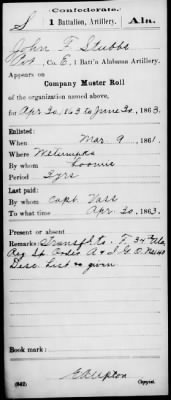 (Confederate.)
S 1 Battalion, Artillery. Ala.
John F Stubbs
Pvt, Co. E, 1 Batt'n Alabama Artillery.
Appears on
Company Muster Roll
of the organization named above,
for Apr 30, 63 to June 30, 1863.
Enlisted:
When Mar 9, 1861.
Where Wetumpka
By whom Loomis
Period 3 yrs
Last paid:
By whom Capt. Vass
To what time Apr 30, 1863.
Present or absent
Remarks: Transf to F. 37 Ala
Reg Order A & I G O
Disc List given
Book mark:
E A Upton
(642) Copyist.